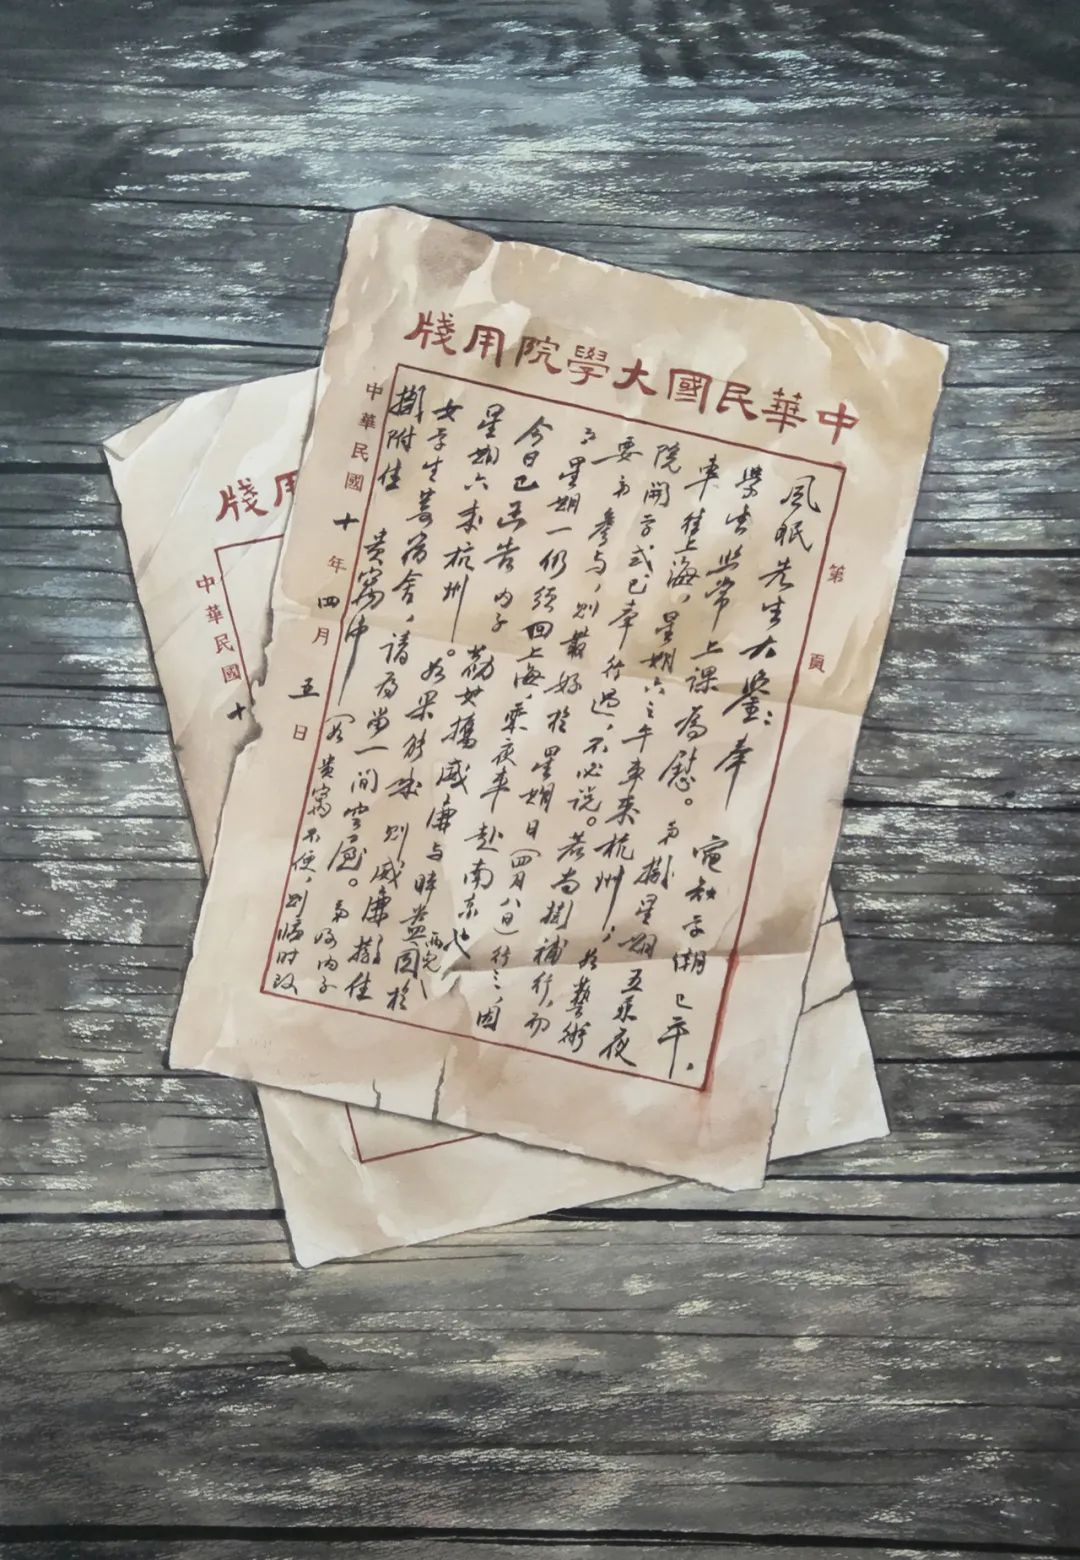 中華民國大學院用牋
第 頁
風眠先生大鑒：奉 電知学潮已平，
學生照常上課為慰。弟擬星期五乘夜
車往上海，星期六之午車來杭州；如藝術
院開学式已奉行過，不必說。若尚擬補行，而
要弟參与，則最好於星期日（四月八日）行之，因
弟星期一仍須回上海，乘夜車赴南京也。
今日已函告 內子 勸其攜威廉与睟盎兩兒同於
星期六來杭州。如果能來 則威廉擬住
女学生寄宿舍，請為留一間空屋。弟及內子
擬附住 貴寓中——（如貴寓不便，則臨時改
中華民國十 年四月五日
用牋
中華民國十